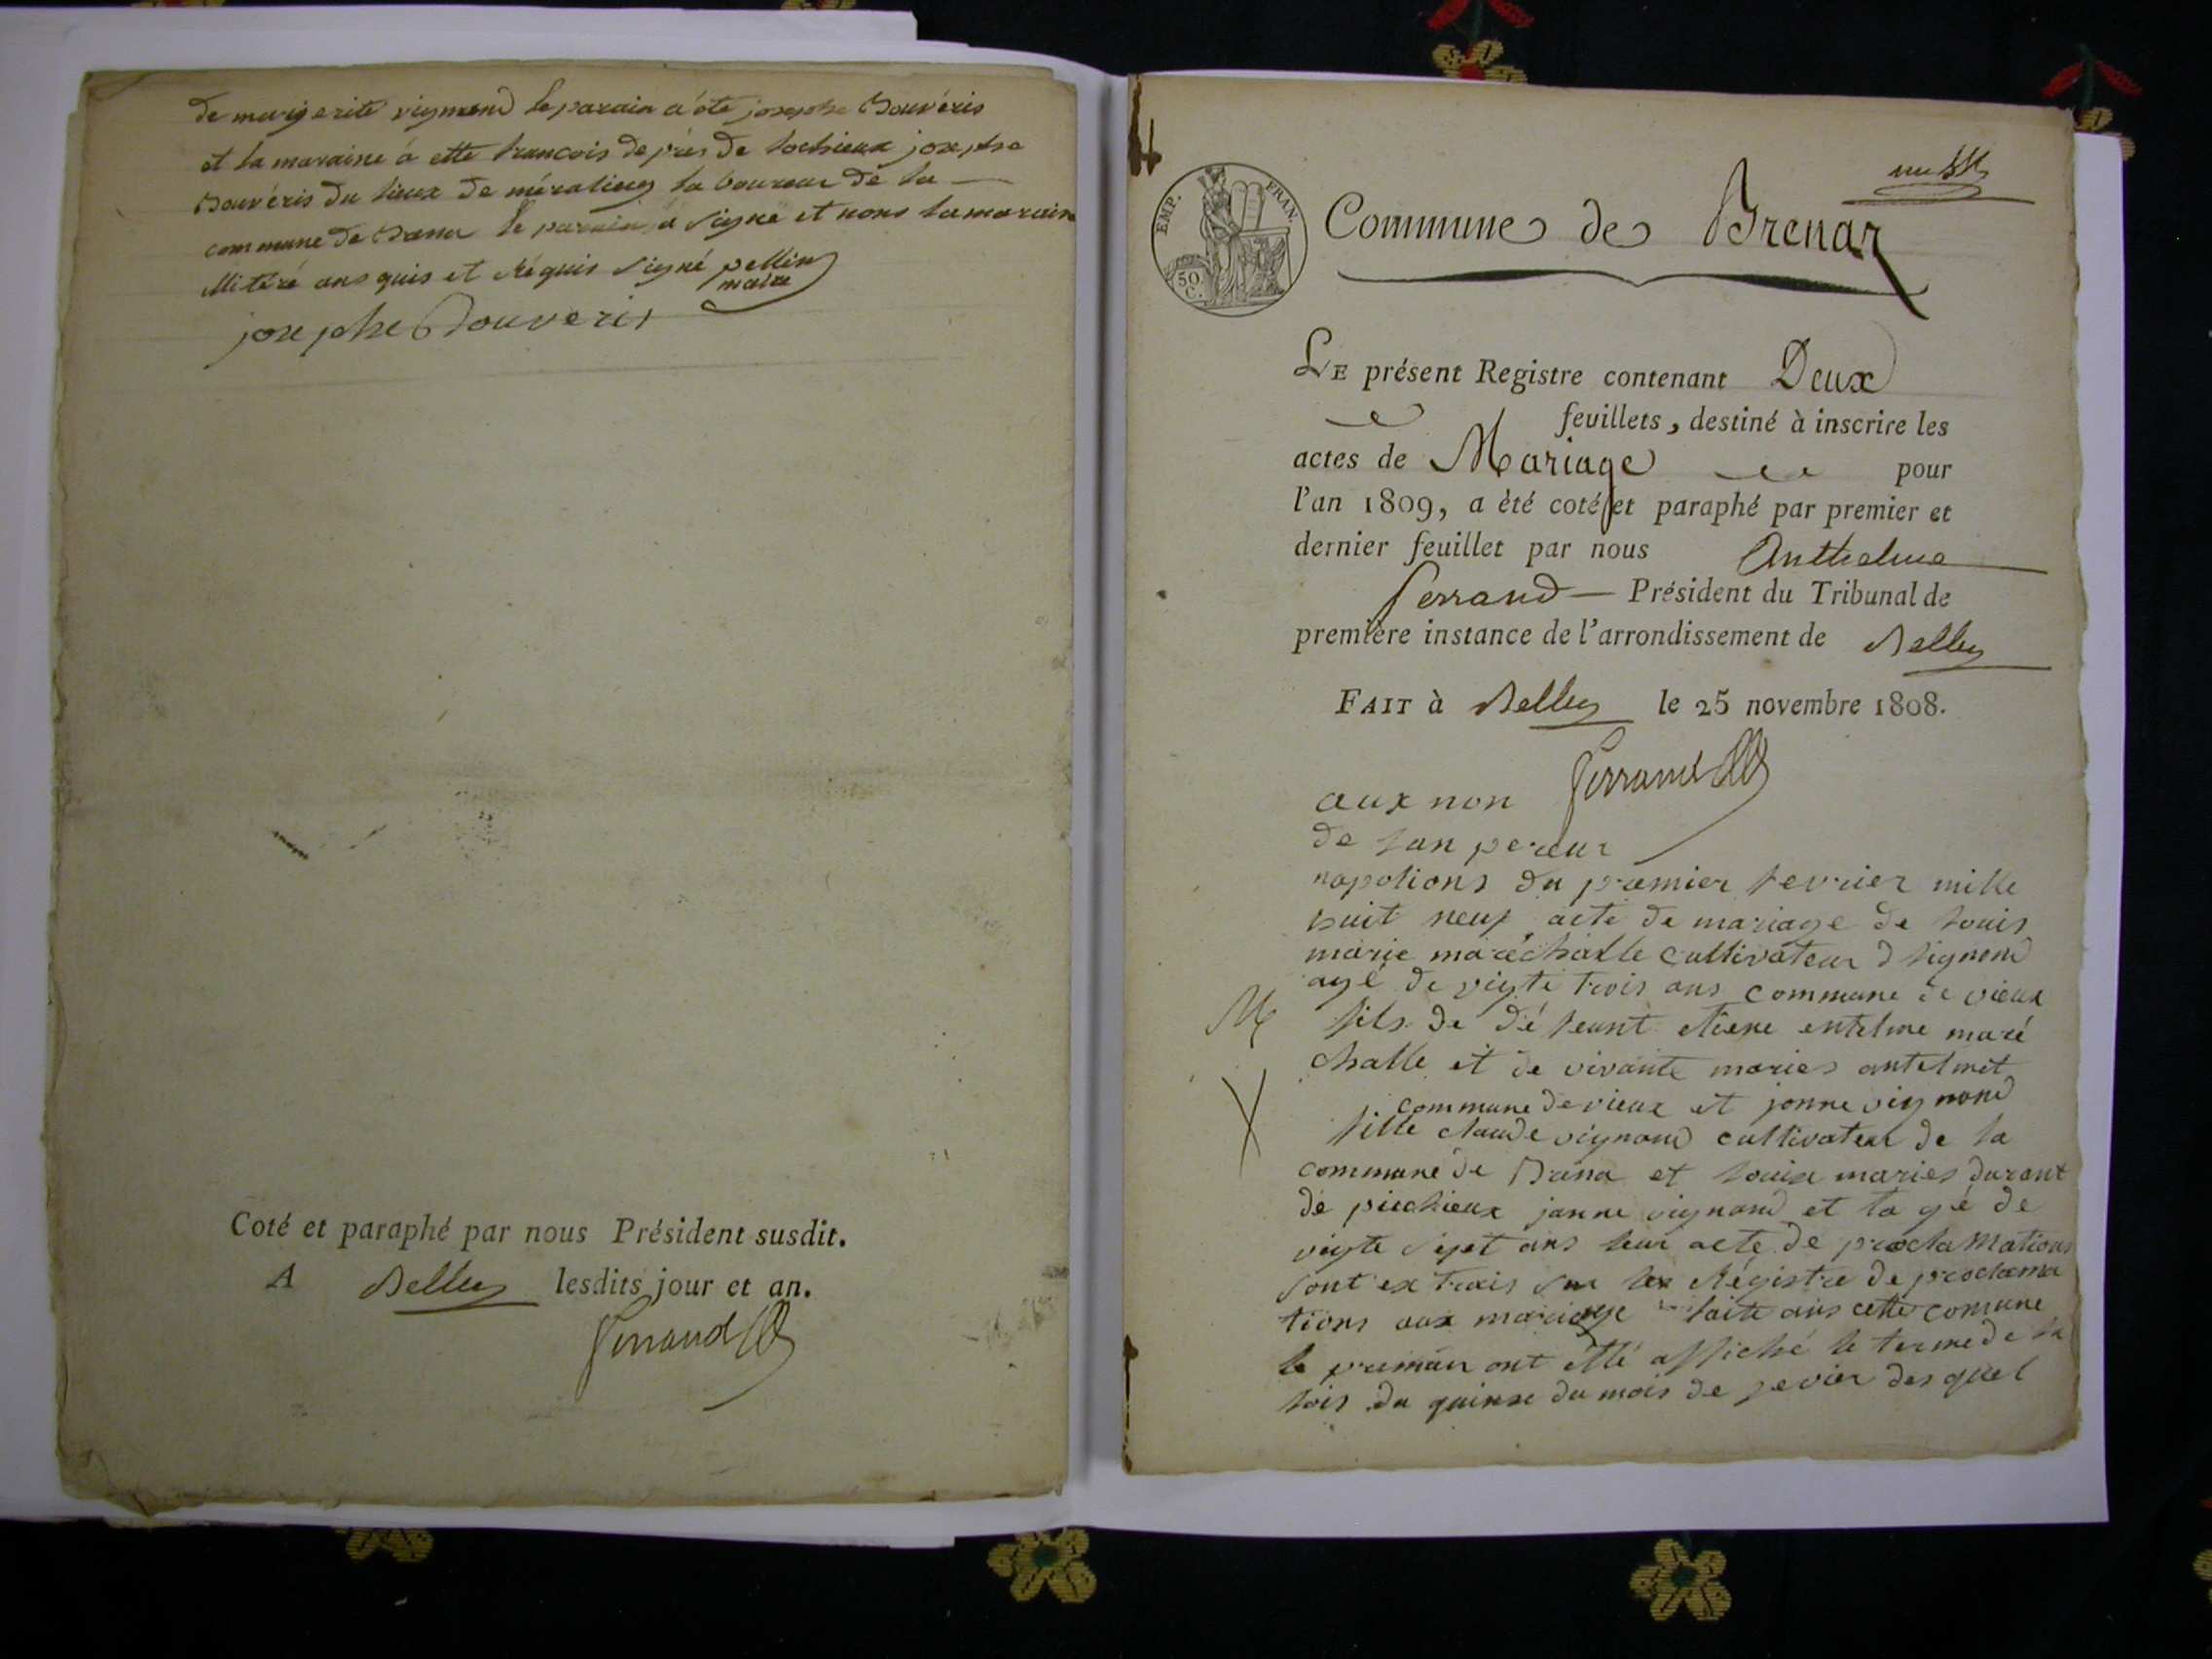 de margerite vigmend le parain a éte josephe Bouvéris
et la maraine a ette francois de près de lochieux josephe
Bouvéris du lieux de méraliey la boureur de la
commune de Brena le parain a signe et nons la maraine
ans quis et Réquis signé pellin
maire
josephe Bouveris
Coté et paraphé par nous Président susdit.
A Belley lesdits jour et an.
Ferrand
EMP. FRAN.
50 C.
Commune de Brenaz
LE présent Registre contenant Deux
feuillets, destiné à inscrire les
actes de Mariage pour
l'an 1809, a été coté et paraphé par premier et
dernier feuillet par nous Anthelme
Ferrand — Président du Tribunal de
première instance de l'arrondissement de Belley
FAIT à Belley le 25 novembre 1808.
Ferrand
aux non
de lan pereur
napolions du premier fevrier mille
huit neuf acte de mariage de louis
marie maréchalle cultivateur d lignend
agé de vigte trois ans commune de vieux
M fils de dé feunt entelme maré
challe et de vivante maries antelmet
commune de vieux et jonne vignond
X fille claude vignond cultivateur de la
commune de Brena et louise maries durant
de janne vignond et la gé de
vigte sept ans leur acte de proclamations
sont ex trais sur les Régistre de proclama
tions aux mariage faite ans cette comune
le premier ont etté affiché le terme de la
lois du quinse du mois de jevier des quel